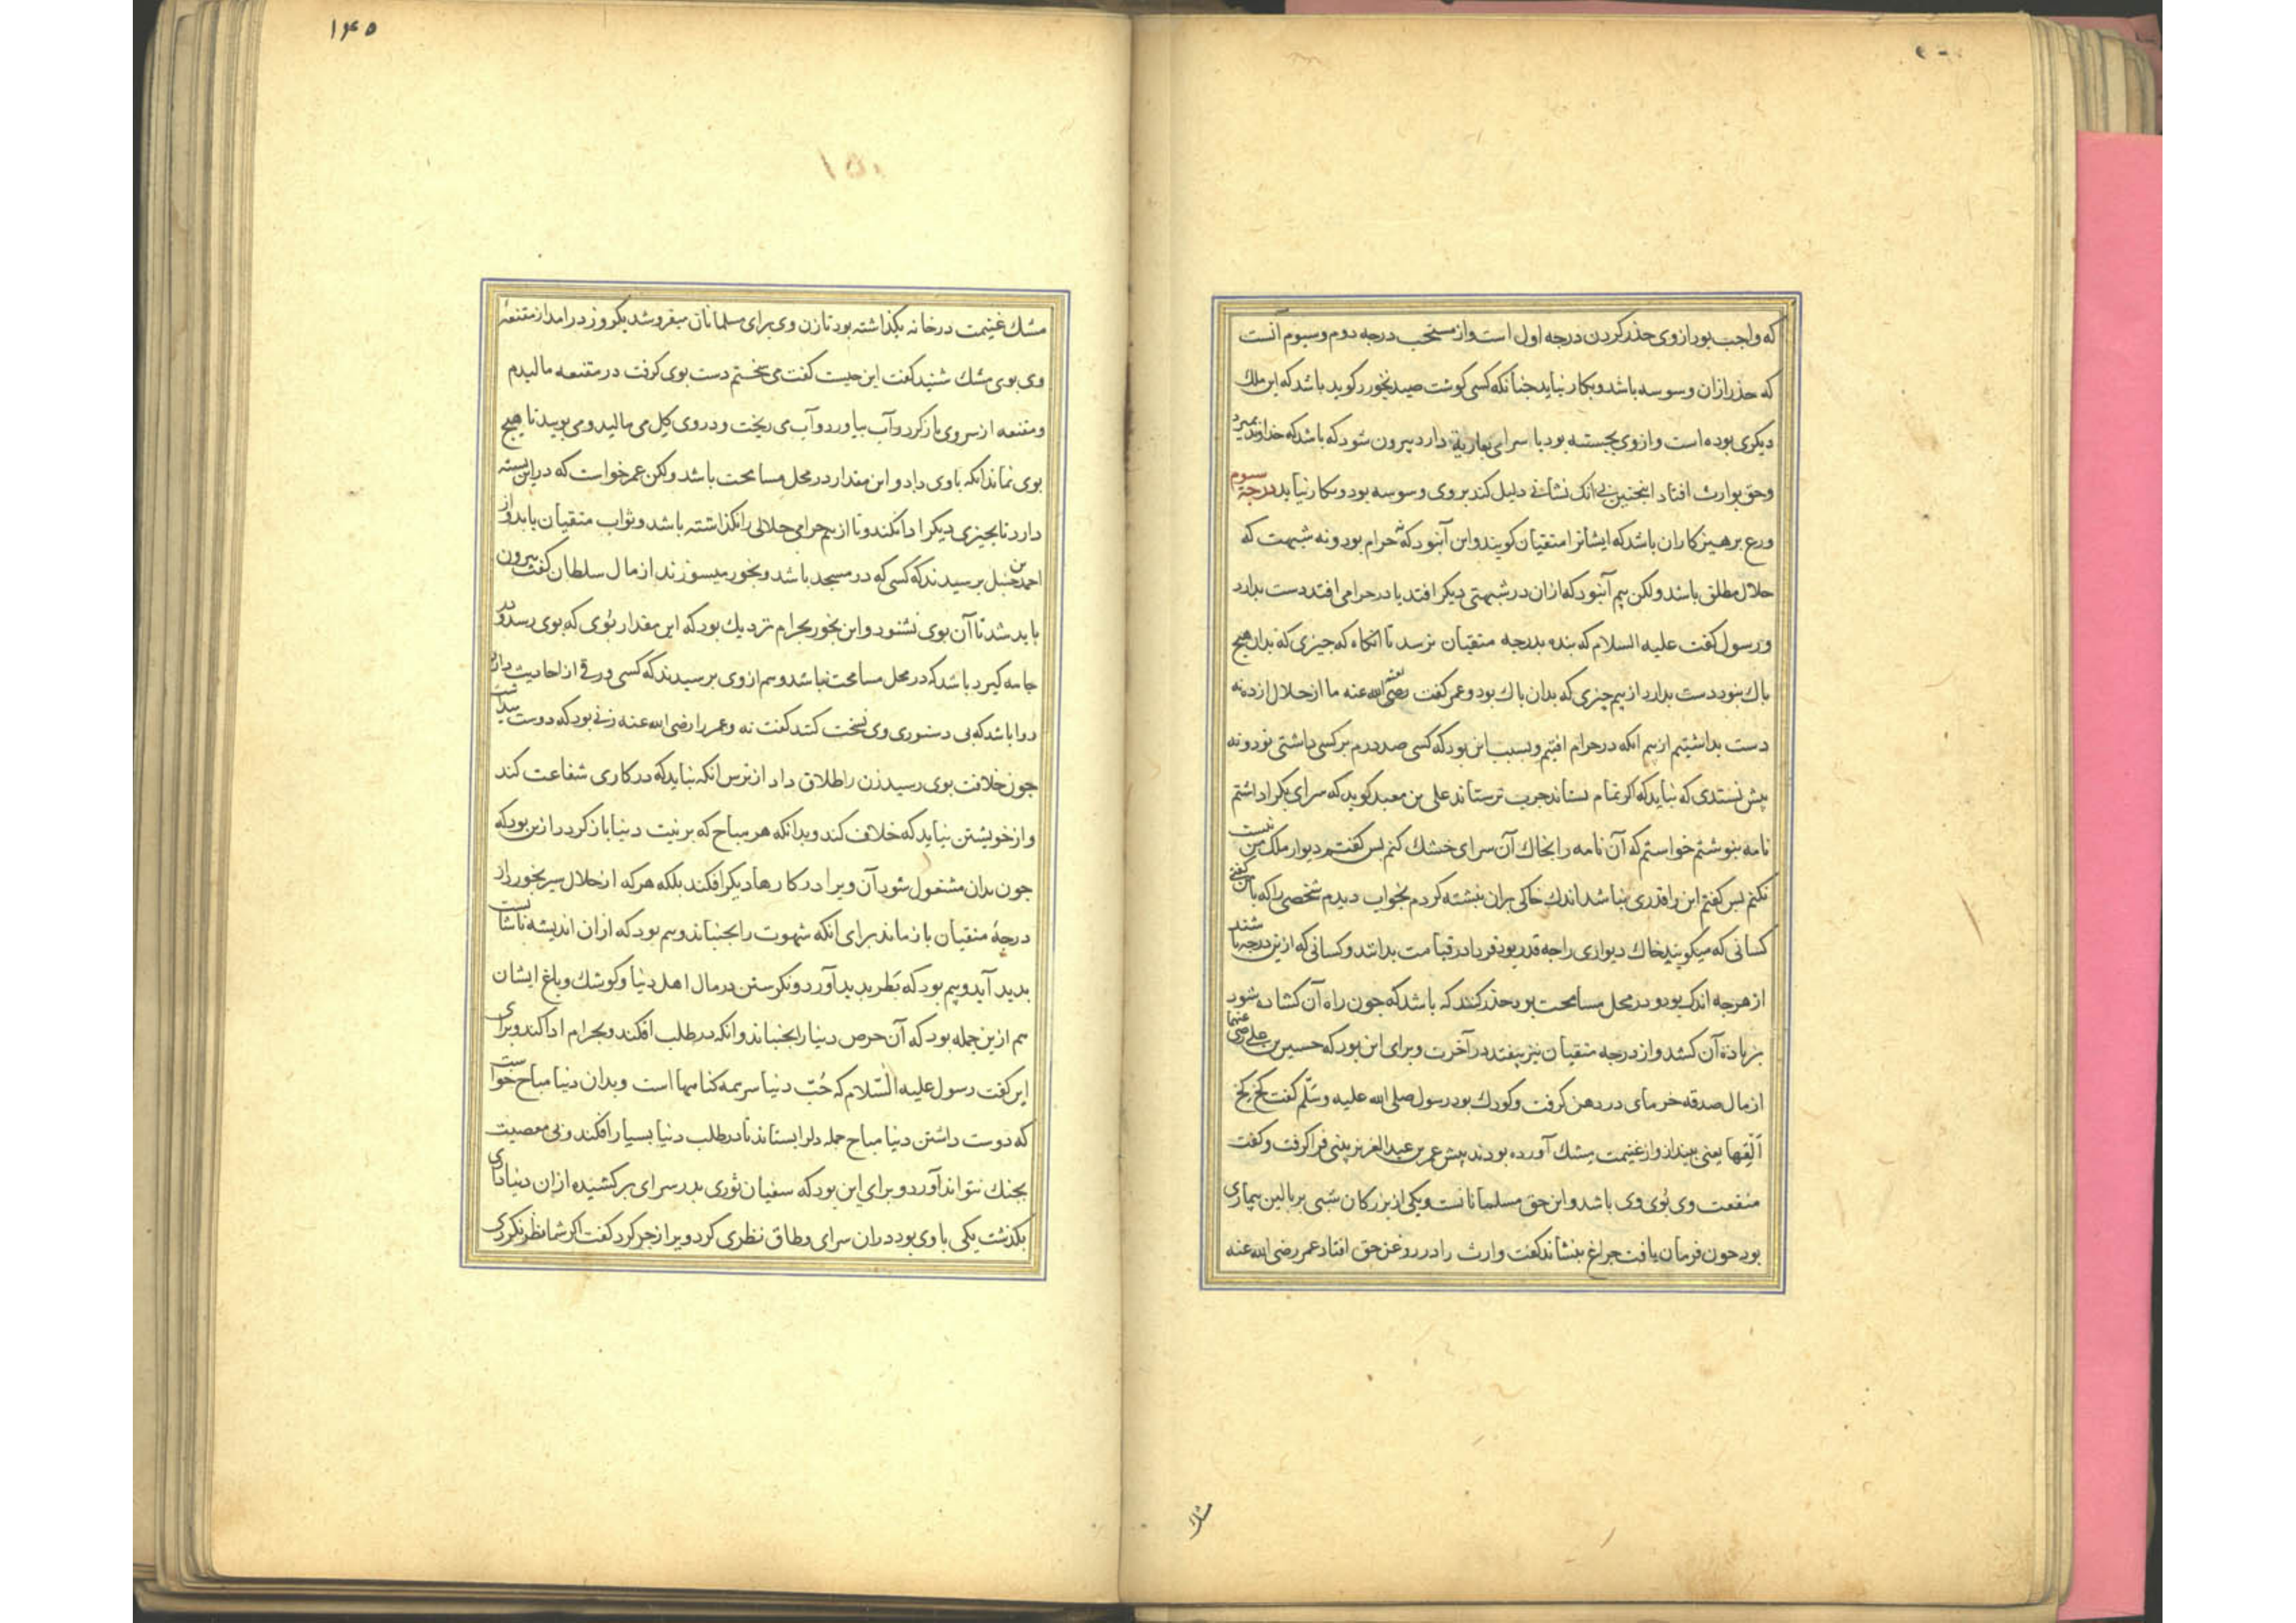 که واجب بود از وی حذر کردن درجه اول است و از مستحب درجه دوم و سیوم آنست
که حذر ازان وسوسه باشد و بکار نیاید جنانکه کسی کوشت صید نخورد کوید باشد که این ملک
دیکری بوده است و از وی بجسته بود یا سرای بعاریة دارد بیرون شود که باشد که خداوند بمیرد
و حق بوارث افتاد اینجنین بی انک نشانی دلیل کند بروی وسوسه بود و بکار نیاید درجهٔ سوم
ورع برهیزکاران باشد که ایشانرا متقیان کویند و این آنبود که نه حرام بود و نه شبهت که
حلال مطلق باشد ولکن بیم آنبود که ازان در شبهتی دیکر افتد یا در حرامی افتد دست بدارد
و رسول کفت علیه السلام که بنده بدرجه متقیان نرسد تا انکاه که جیزی که بدان هیچ
باک نبود دست بدارد از بیم جیزی که بدان باک بود و عمر کفت رضی الله عنه ما از حلال از ده نه
دست بداشتیم از بیم انکه در حرام افتیم و بسبب این بود که کسی صد درم بر کسی داشتی نود و نه
بیش نستدی که نباید که اکر تمام بستاند جرب تر ستاند علی بن معبد کوید که سرای بکرا داشتم
نامه بنوشتم خواستم که آن نامه را بخاک آن سرای خشک کنم بس کفتم دیوار ملک من نیست
نکنم بس کفتم این را قدری نباشد اندک خاکی بران نبشته کردم بخواب دیدم شخصی را که با من کفتی
کسانی که میکویند خاک دیواری را جه قدر بود فردا در قیامت بدانند و کسانی که ازین درجه باشند
از هرجه اندک بود و در محل مسامحت بود حذر کنند که باشد که جون راه آن کشاده شود
بزیاده آن کشد و از درجه متقیان نیز بیفتد در آخرت و برای این بود که حسین بن علی رضی عنهما
از مال صدقه خرمای در دهن کرفت و کودک بود رسول صلی الله علیه وسلّم کفت کخ کخ
اَلْقِها یعنی بینداز و از غنیمت مشک آورده بودند پیش عمر بن عبدالعزیز بینی فرا کرفت و کفت
منفعت وی بُوی وی باشد و این حق مسلمانانست و یکی از بزرکان شبی بر بالین بیماری
بود جون فرمان یافت جراغ بنشاند کفت وارث را در روغن حق افتاد عمر رضی الله عنه
مشک
۱۴۵
۱۵۰
مشک غنیمت در خانه بکذاشته بود تا زن وی برای مسلمانان میفروشد یکروز درامد از مقنعهٔ
وی بوی مشک شنید کفت این جیست کفت می سختم دست بوی کرفت در مقنعه مالیدم
و مقنعه از سر وی باز کرد و آب بیاورد و آب می ریخت و در وی کِل می مالید و می بویید تا هیچ
بوی نماند انکه باوی داد و این مقدار در محل مسامحت باشد ولکن عمر خواست که در این بسته
دارد تا بجیزی دیکر ادا نکند و تا از بیم حرامی حلالی را نکذاشته باشد و ثواب متقیان یابد و از
احمد بن حنبل برسیدند که کسی که در مسجد باشد و بخور میسوزند از مال سلطان کفت بیرون
باید شد تا آن بوی نشنود و این بخور بحرام نزدیک بود که این مقدار بُوی که بوی رسد و در
جامه کیرد باشد که در محل مسامحت نباشد و هم از وی برسیدند که کسی ورقی از احادیث دارد
روا باشد که بی دستوری وی نسخت کند کفت نه و عمر را رضی الله عنه زنی بود که دوست میداشت
جون خلافت بوی رسید زن را طلاق داد از ترس انکه نباید که در کاری شفاعت کند
و از خویشتن نیاید که خلاف کند و بدانکه هر مباح که بر نیت دنیا باز کردد ازین بود که
جون بدان مشغول شود آن ویرا در کارها دیکر افکند بلکه هر که از حلال سیر بخورد از
درجهٔ متقیان باز ماند برای انکه شهوت را بجنباند و بیم بود که ازان اندیشه ناشایست
بدید آید و بیم بود که نظر بدید آورد و نکرستن در مال اهل دنیا و کوشک و باغ ایشان
هم ازین جمله بود که آن حرص دنیا را بجنباند و انکه در طلب افکند و بحرام ادا کند و برای
این کفت رسول علیه السّلام که حُبّ دنیا سر همه کناهها است و بدان دنیا مباح خواست
که دوست داشتن دنیا مباح جمله دل را بستاند تا در طلب دنیا بسیار افکند و بی معصیت
بجنک نتواند آورد و برای این بود که سفیان ثوری بدر سرای برکشیده ازان دنیاداری
بکذشت یکی باوی بود دران سرای وطاق نظری کرد ویرا زجر کرد کفت اکر شما نظر نکردی